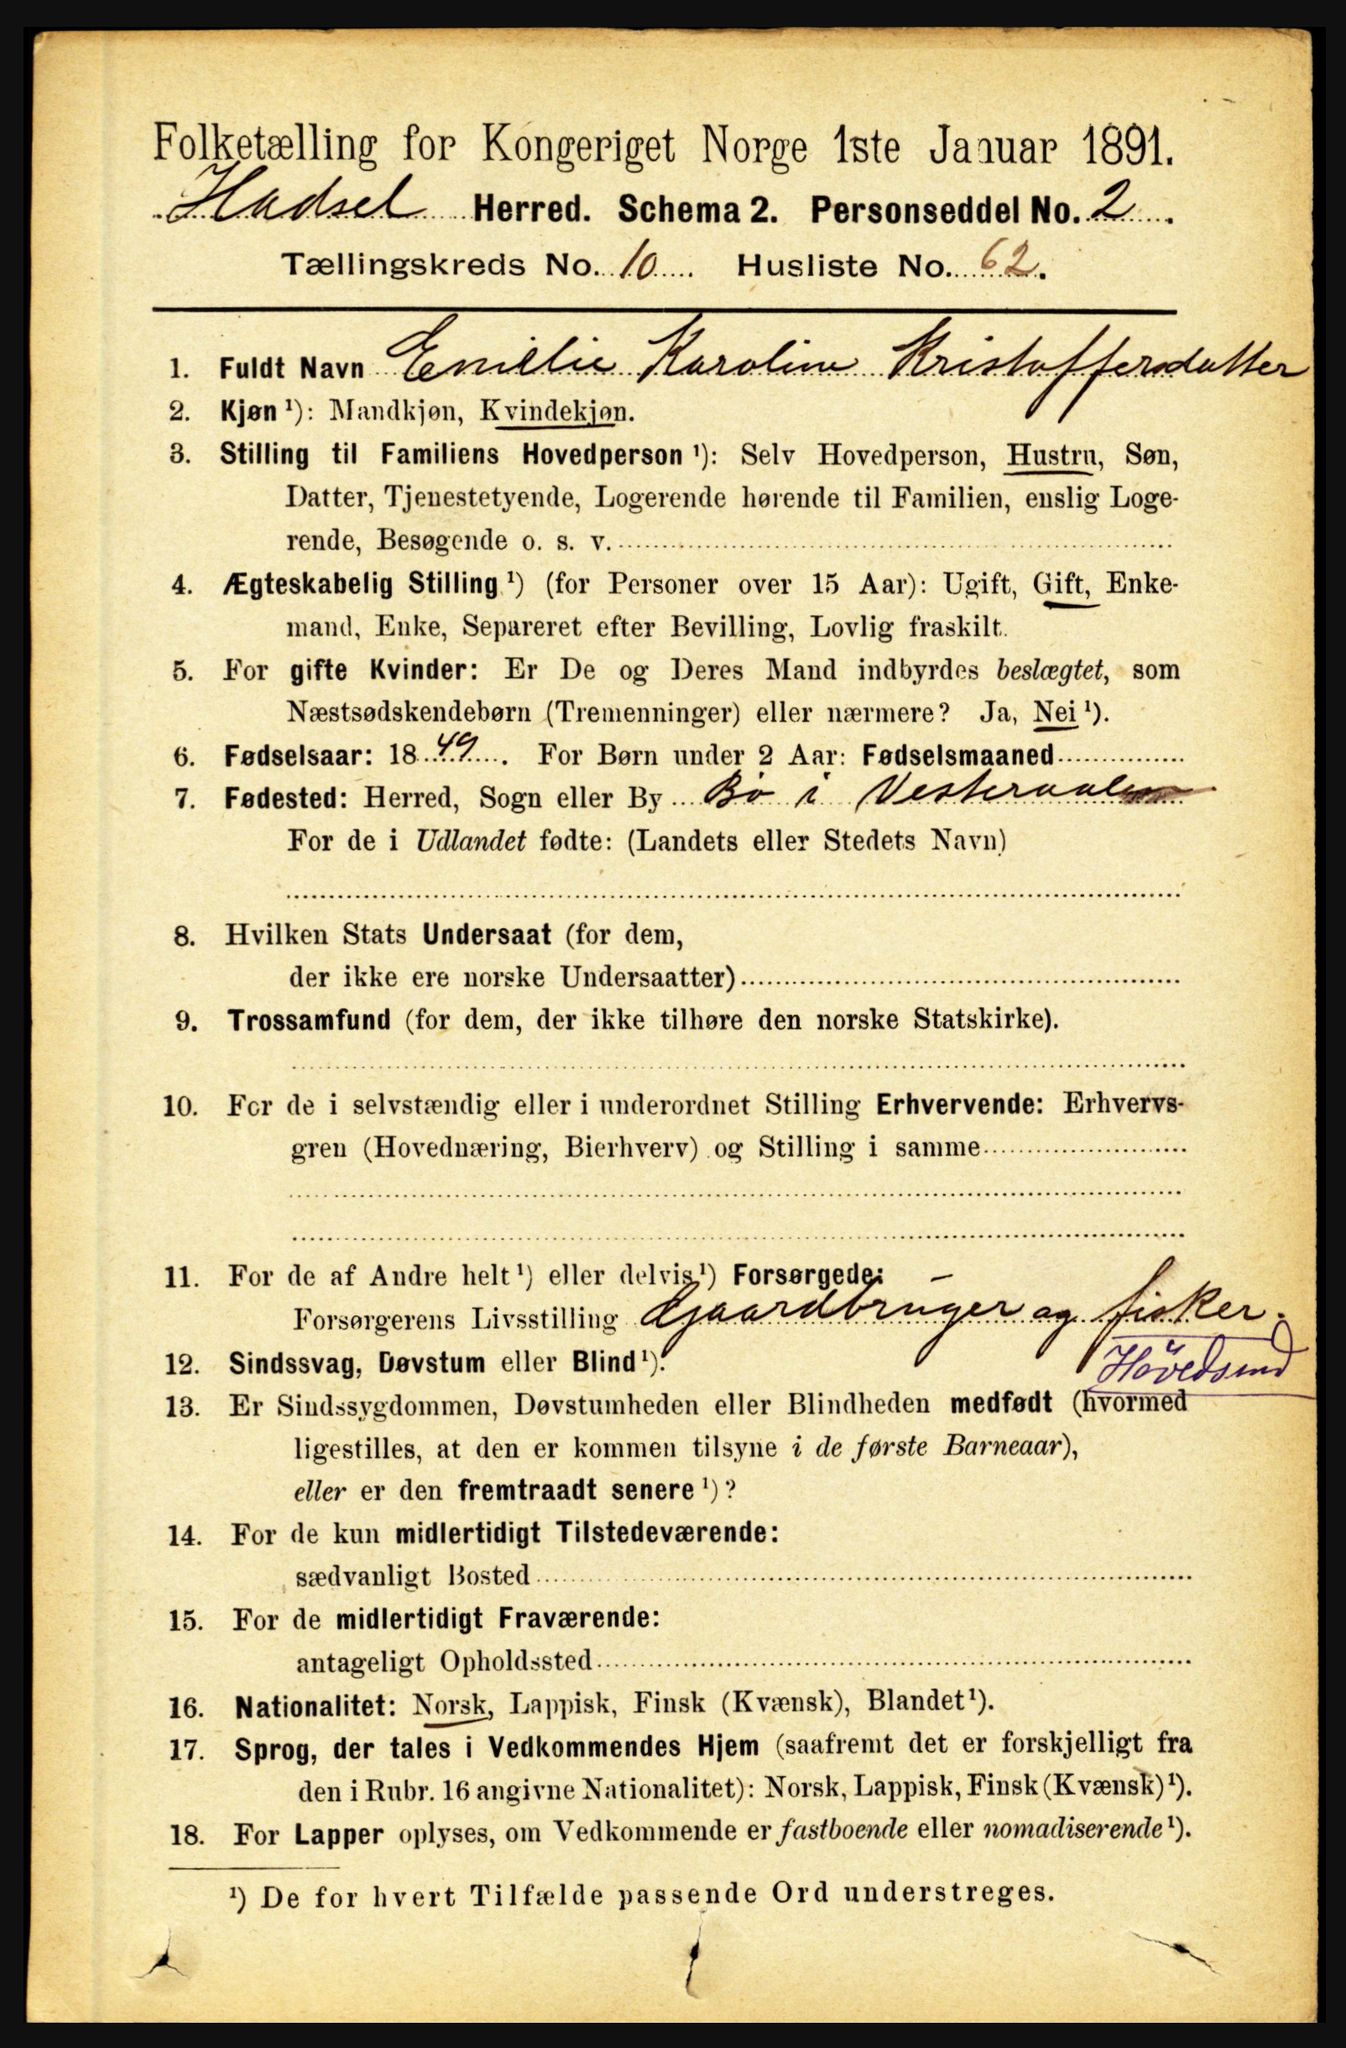 Folketælling for Kongeriget Norge 1ste Januar 1891.
Hadsel Herred. Schema 2. Personseddel No. 2.
Tællingskreds No. 10. Husliste No. 62.
1. Fuldt Navn Emilie Karoline Kristoffersdatter
2. Kjøn ¹): Mandkjøn, Kvindekjøn.
3. Stilling til Familiens Hovedperson ¹): Selv Hovedperson, Hustru, Søn,
Datter, Tjenestetyende, Logerende hørende til Familien, enslig Loge-
rende, Besøgende o. s. v.
4. Ægteskabelig Stilling ¹) (for Personer over 15 Aar): Ugift, Gift, Enke-
mand, Enke, Separeret efter Bevilling, Lovlig fraskilt.
5. For gifte Kvinder: Er De og Deres Mand indbyrdes beslægtet, som
Næstsødskendebørn (Tremenninger) eller nærmere? Ja, Nei ¹).
6. Fødselsaar: 1849. For Børn under 2 Aar: Fødselsmaaned
7. Fødested: Herred, Sogn eller By Bø i Vesteraalen
For de i Udlandet fødte: (Landets eller Stedets Navn)
8. Hvilken Stats Undersaat (for dem,
der ikke ere norske Undersaatter)
9. Trossamfund (for dem, der ikke tilhøre den norske Statskirke).
10. For de i selvstændig eller i underordnet Stilling Erhvervende: Erhvervs-
gren (Hovednæring, Bierhverv) og Stilling i samme
11. For de af Andre helt ¹) eller delvis ¹) Forsørgede: –
Forsørgerens Livsstilling Gjaardbruger og fisker.
12. Sindssvag, Døvstum eller Blind ¹). Hövedsmd
13. Er Sindssygdommen, Døvstumheden eller Blindheden medfødt (hvormed
ligestilles, at den er kommen tilsyne i de første Barneaar),
eller er den fremtraadt senere ¹)?
14. For de kun midlertidigt Tilstedeværende:
sædvanligt Bosted
15. For de midlertidigt Fraværende:
antageligt Opholdssted
16. Nationalitet: Norsk, Lappisk, Finsk (Kvænsk), Blandet ¹).
17. Sprog, der tales i Vedkommendes Hjem (saafremt det er forskjelligt fra
den i Rubr. 16 angivne Nationalitet): Norsk, Lappisk, Finsk (Kvænsk) ¹).
18. For Lapper oplyses, om Vedkommende er fastboende eller nomadiserende ¹).
¹) De for hvert Tilfælde passende Ord understreges.